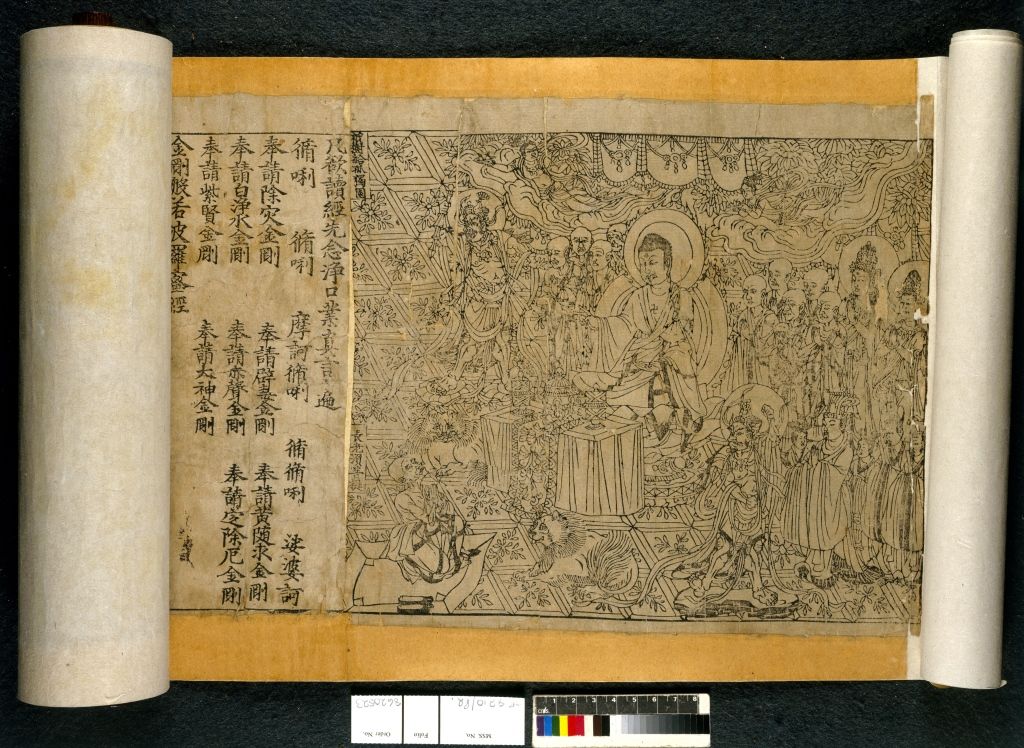 祇樹給孤獨園
長老須菩提
凡欲讀經先念淨口業真言一遍
脩唎 脩唎 摩訶脩唎 脩脩唎 娑婆訶
奉請除灾金剛 奉請辟毒金剛 奉請黃隨求金剛
奉請白淨水金剛 奉請赤聲金剛 奉請定除厄金剛
奉請紫賢金剛 奉請大神金剛
金剛般若波羅蜜經
MSS. No.
Folio
Order No.
cms 1 2 3 4 5 6 7 8